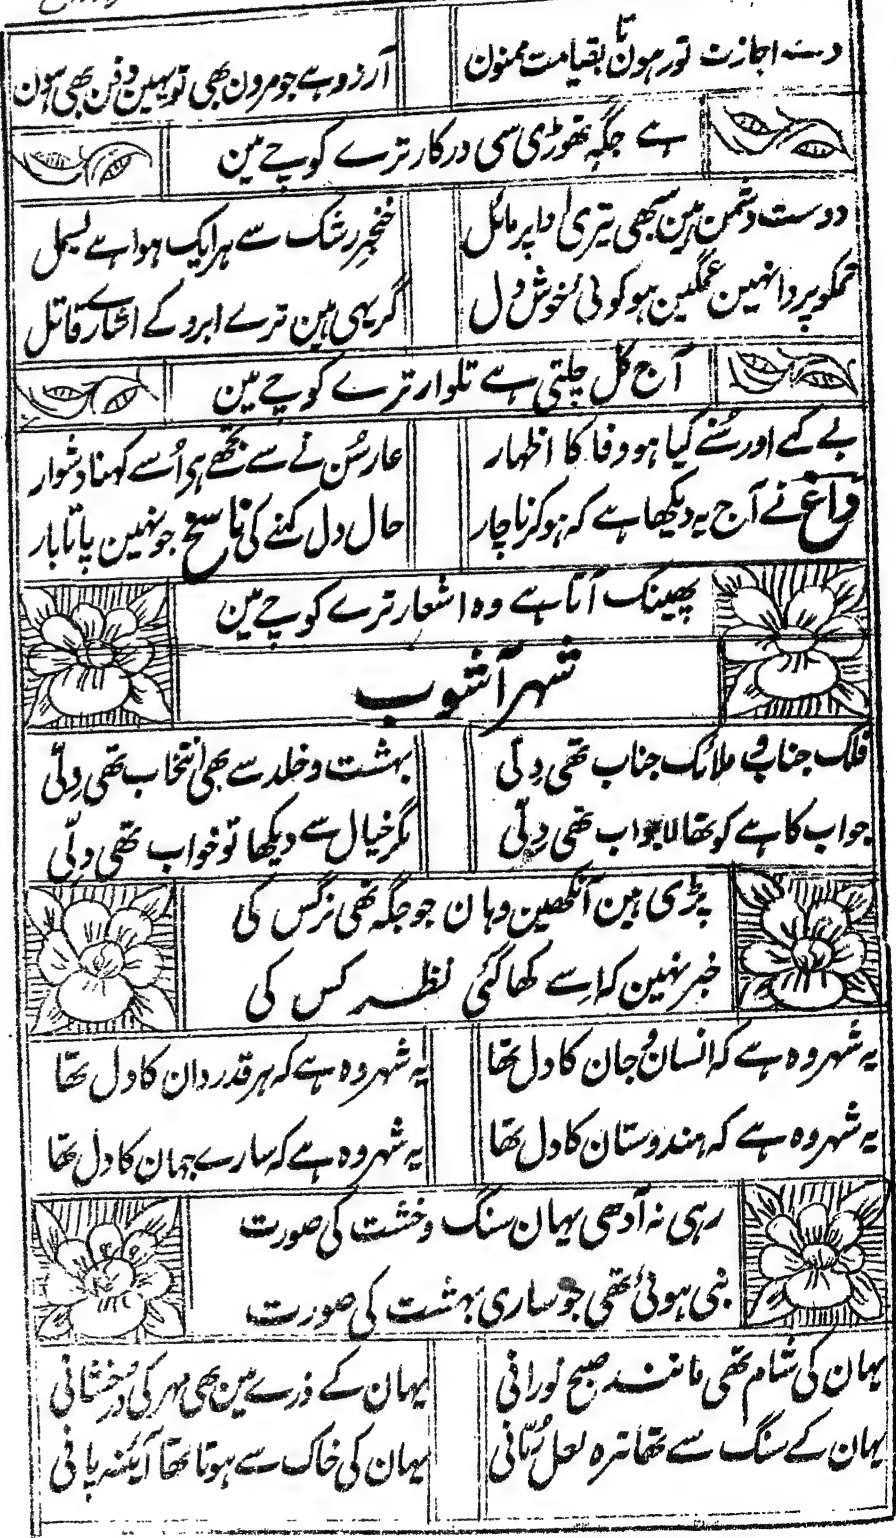 دے اجازت تو رہون تا بقیامت ممنون
آرزو ہے جو مرون بھی تو یہین دفن بھی ہون
ہے جگہ تھوڑی سی درکار ترے کوچے مین
دوست دشمن ہین سبھی تیری ادا پر مائل
خنجر رشک سے ہر ایک ہوا ہے بسمل
تمکو پروا نہین غمگین ہو کوئی خوش دل
گر یہی ہین ترے ابرو کے اشارے قاتل
آج کل چلتی ہے تلوار ترے کوچے مین
بے کہے اور سُنے کیا ہو وفا کا اظہار
عار سُن نے سے تجھے ہے اُسے کہنا دشوار
داغ نے آج یہ دیکھا ہے کہ ہو کر ناچار
حال دل کہنے کی ناسخ جو نہین پاتا بار
پھینک آتا ہے وہ اشعار ترے کوچے مین
شہر آشوب
فلک جناب و ملائک جناب تھی دِلّی
بہشت و خلد سے بھی انتخاب تھی دِلّی
جواب کاہے کو تھا لاجواب تھی دِلّی
مگر خیال سے دیکھا تو خواب تھی دِلّی
پڑی ہین آنکھین وہان جو جگہ تھی نرگس کی
خبر نہین کہ اِسے کھا گئی نظر کس کی
یہ شہر وہ ہے کہ انسان و جان کا دل تھا
یہ شہر وہ ہے کہ ہر قدردان کا دل تھا
یہ شہر وہ ہے کہ ہندوستان کا دل تھا
یہ شہر وہ ہے کہ سارے جہان کا دل تھا
رہی نہ آدھی یہان سنگ و خشت کی صورت
بنی ہوئی تھی جو ساری بہشت کی صورت
یہان کی شام تھی مانند صبح نورانی
یہان کے ذرے مین بھی مہر کی درخشانی
یہان کے سنگ سے تھا تیرہ لعل رُمّانی
یہان کی خاک سے ہوتا تھا آئینہ پانی